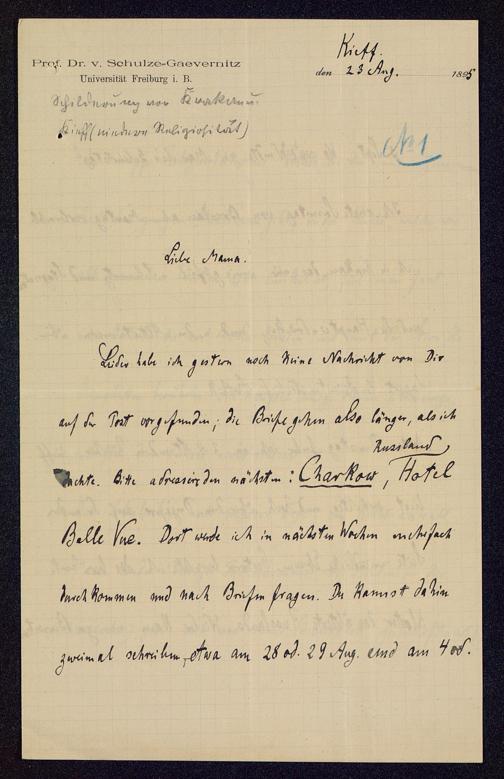 Prof. Dr. v. Schulze-Gaevernitz
Universität Freiburg i. B.
Kieff.
den 23 Aug. 1895
Schilderung von Krakau u.
Kieff (niedere Religiosität)
No 1
Liebe Mama.
Leider habe ich gestern noch keine Nachricht von Dir
auf der Post vorgefunden; die Briefe gehen also länger, als ich
dachte. Bitte adressire den nächsten: Charkow, Russland, Hotel
Belle Vue. Dort werde ich in nächsten Wochen mehrfach
durchkommen und nach Briefen fragen. Du kannst dahin
zweimal schreiben, etwa am 28 od. 29 Aug. und am 4 od.